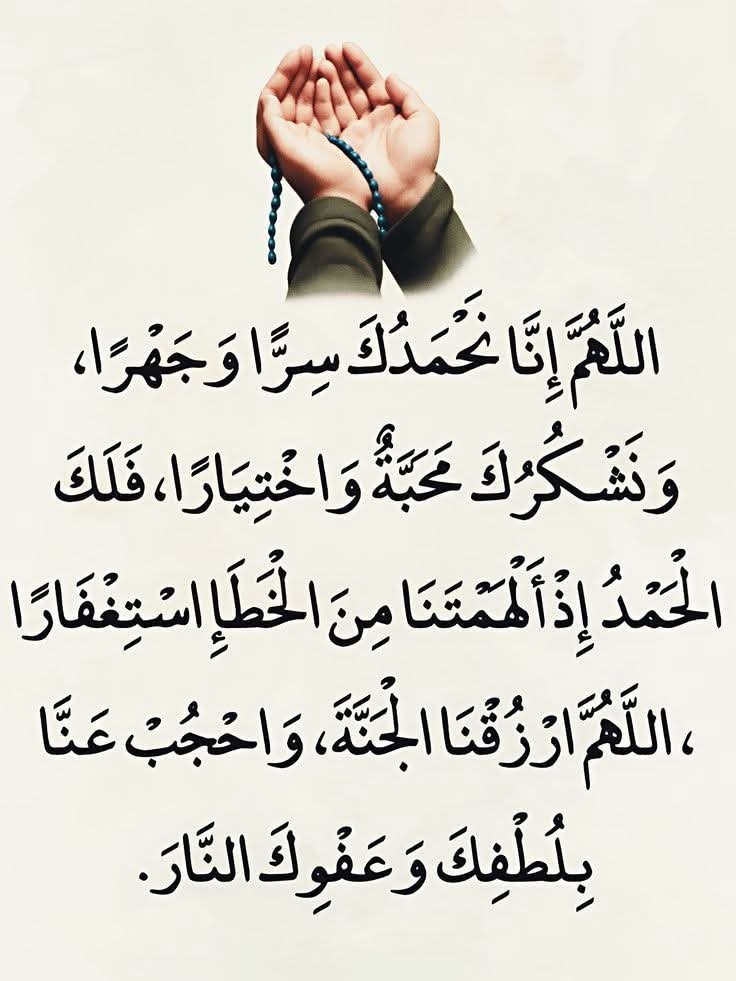 اللَّهُمَّ إِنَّا نَحْمَدُكَ سِرًّا وَجَهْرًا،
وَنَشْكُرُكَ مَحَبَّةٌ وَاخْتِيَارًا، فَلَكَ
الْحَمْدُ إِذْ أَلْهَمْتَنَا مِنَ الْخَطَإِ اسْتِغْفَارًا
، اللَّهُمَّ ارْزُقْنَا الْجَنَّةَ، وَاحْجُبْ عَنَّا
بِلُطْفِكَ وَعَفْوِكَ النَّارَ.